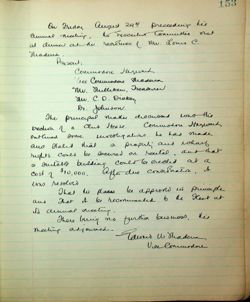 153
On Friday August 24th preceding the
annual meeting, the Executive Committee met
at dinner at the residence of Mr. Louis C.
Present;
Commodore Hayward
Vice Commodore
Mr. Treasurer
Mr. C. D.
Dr. Johnson
The principal matter discussed was the
of a Club House. Commodore Hayward
outlined some investigation he has made
and stated that a property and wharf
rights could be secured or rented, and that
a suitable building could be erected at a
cost of $10,000. After due consideration, it
was resolved
That the plans be approved in principle
and that it be recommended to the Fleet at
its annual meeting.
There being no further business, the
meeting adjourned.
Vice Commodore